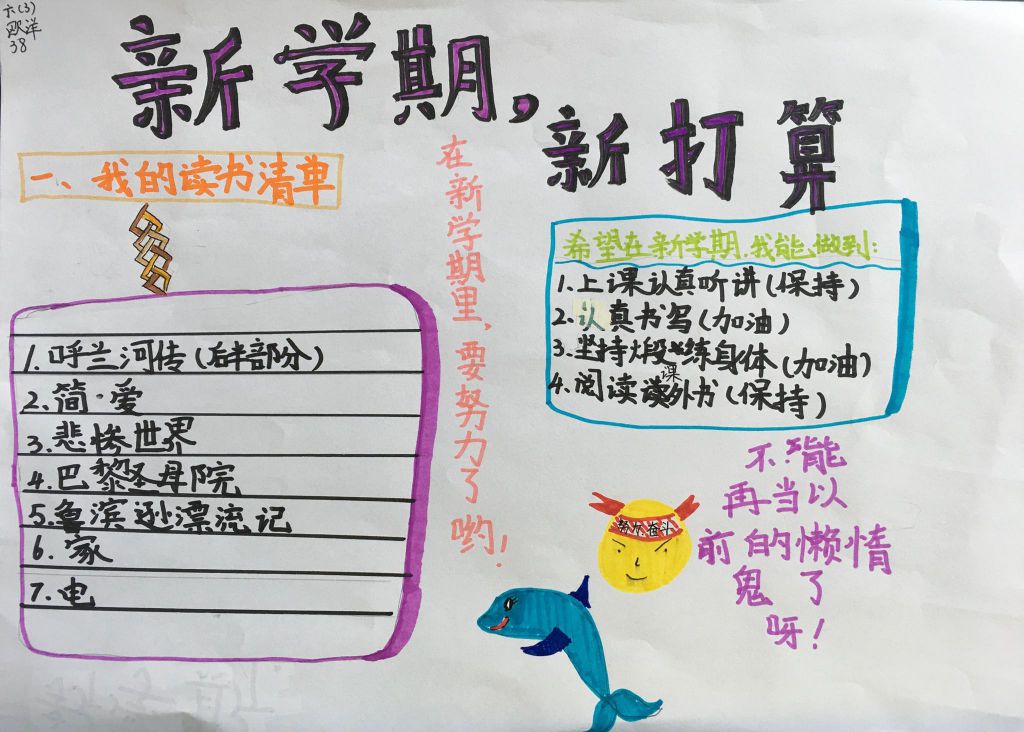 六(3)
欧洋
38
新学期,
新打算
一、我的读书清单
1.呼兰河传(后半部分)
2.简·爱
3.悲惨世界
4.巴黎圣母院
5.鲁滨逊漂流记
6.家
7.电
在新学期里,要努力了哟!
希望在新学期,我能做到:
1.上课认真听讲(保持)
2.认真书写(加油)
3.坚持煅炼身体(加油)
4.阅读课外书(保持)
努力奋斗
不能
再当以
前的懒惰
鬼了
呀!